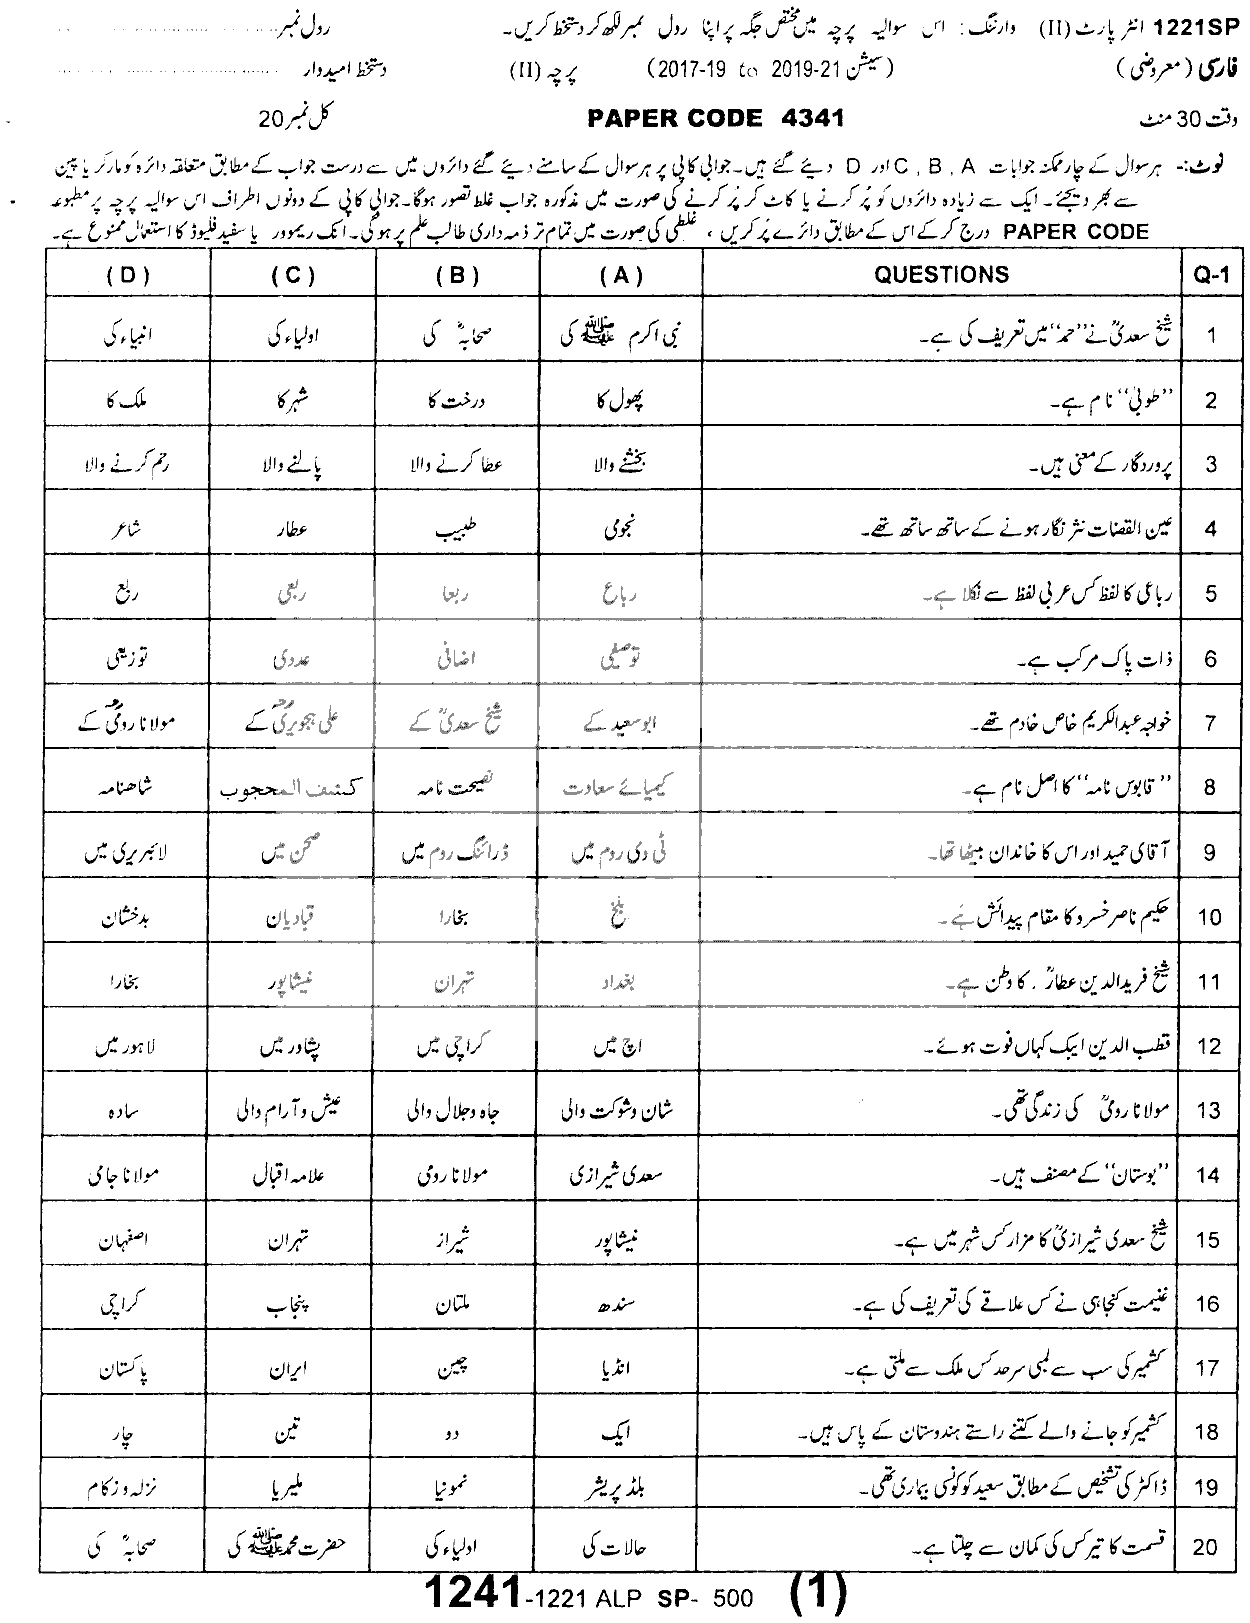 1221SP انٹر پارٹ (II) وارننگ: اس سوالیہ پرچہ میں مختص جگہ پر اپنا رول نمبر لکھ کر دستخط کریں۔ رول نمبر
فارسی (معروضی) (سیشن 2019-21 to 2017-19) پرچہ (II) دستخط امیدوار
وقت 30 منٹ PAPER CODE 4341 کل نمبر 20
نوٹ:- ہر سوال کے چار ممکنہ جوابات A , B , C اور D دیئے گئے ہیں۔ جوابی کاپی پر ہر سوال کے سامنے دیئے گئے دائروں میں سے درست جواب کے مطابق متعلقہ دائرہ کو مارکر یا پین
سے بھر دیجئے۔ ایک سے زیادہ دائروں کو پُر کرنے یا کاٹ کر پُر کرنے کی صورت میں مذکورہ جواب غلط تصور ہوگا۔ جوابی کاپی کے دونوں اطراف اس سوالیہ پرچہ پر مطبوعہ
PAPER CODE درج کر کے اس کے مطابق دائرے پُر کریں ، غلطی کی صورت میں تمام تر ذمہ داری طالب علم پر ہوگی۔ انک ریموور یا سفید فلیوڈ کا استعمال ممنوع ہے۔
Q-1 QUESTIONS (A) (B) (C) (D)
1 شیخ سعدیؒ نے ''حمد'' میں تعریف کی ہے۔ نبی اکرم ﷺ کی صحابہؓ کی اولیاء کی انبیاء کی
2 ''طوبیٰ'' نام ہے۔ پھول کا درخت کا شہر کا ملک کا
3 پروردگار کے معنی ہیں۔ بخشنے والا عطا کرنے والا پالنے والا رحم کرنے والا
4 عین القضات نثر نگار ہونے کے ساتھ ساتھ تھے۔ نجومی طبیب عطار شاعر
5 رباعی کا لفظ کس عربی لفظ سے نکلا ہے۔ رباع ربعا ربعی ربع
6 ذات پاک مرکب ہے۔ توصیفی اضافی عددی توزیعی
7 خواجہ عبدالکریم خاص خادم تھے۔ ابوسعید کے شیخ سعدیؒ کے علی ہجویریؒ کے مولانا رومیؒ کے
8 ''قابوس نامہ'' کا اصل نام ہے۔ کیمیائے سعادت نصیحت نامہ کشف المحجوب شاھنامہ
9 آقای حمید اور اس کا خاندان بیٹھا تھا۔ ٹی وی روم میں ڈرائنگ روم میں صحن میں لائبریری میں
10 حکیم ناصر خسرو کا مقام پیدائش ہے۔ بلخ بخارا قبادیان بدخشان
11 شیخ فریدالدین عطارؒ کا وطن ہے۔ بغداد تہران نیشاپور بخارا
12 قطب الدین ایبک کہاں فوت ہوئے۔ اچ میں کراچی میں پشاور میں لاہور میں
13 مولانا رومیؒ کی زندگی تھی۔ شان وشوکت والی جاہ وجلال والی عیش و آرام والی سادہ
14 ''بوستان'' کے مصنف ہیں۔ سعدی شیرازی مولانا رومی علامہ اقبال مولانا جامی
15 شیخ سعدی شیرازیؒ کا مزار کس شہر میں ہے۔ نیشاپور شیراز تہران اصفہان
16 غنیمت کنجاہی نے کس علاقے کی تعریف کی ہے۔ سندھ ملتان پنجاب کراچی
17 کشمیر کی سب سے لمبی سرحد کس ملک سے ملتی ہے۔ انڈیا چین ایران پاکستان
18 کشمیر کو جانے والے کتنے راستے ہندوستان کے پاس ہیں۔ ایک دو تین چار
19 ڈاکٹر کی تشخیص کے مطابق سعید کو کونسی بیماری تھی۔ بلڈ پریشر نمونیا ملیریا نزلہ و زکام
20 قسمت کا تیر کس کی کمان سے چلتا ہے۔ حالات کی اولیاء کی حضرت محمد ﷺ کی صحابہؓ کی
1241-1221 ALP SP- 500 (1)